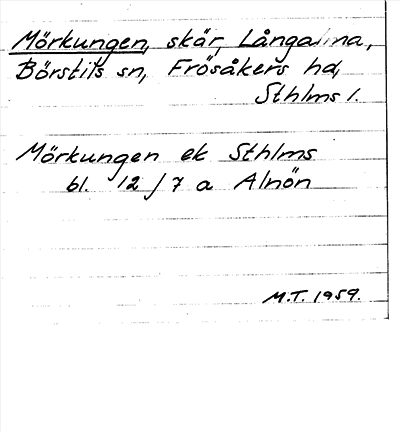 Mörkungen, skär, Långalma,
Börstils sn, Frösåkers hd,
Sthlms l.
Mörkungen ek Sthlms
bl. 12 J 7 a Alnön
M.T. 1959.